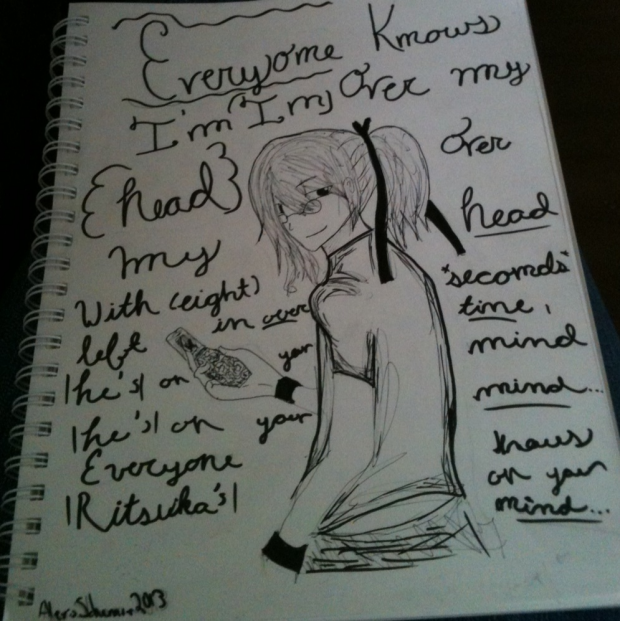 Everyone Knows
I'm (I'm) Over my
{head} over
my head
With (eight) "seconds"
left in over time,
|he's| on your mind
|he's| on your mind...
Everyone knows
|Ritsuka's| on your mind...
2013